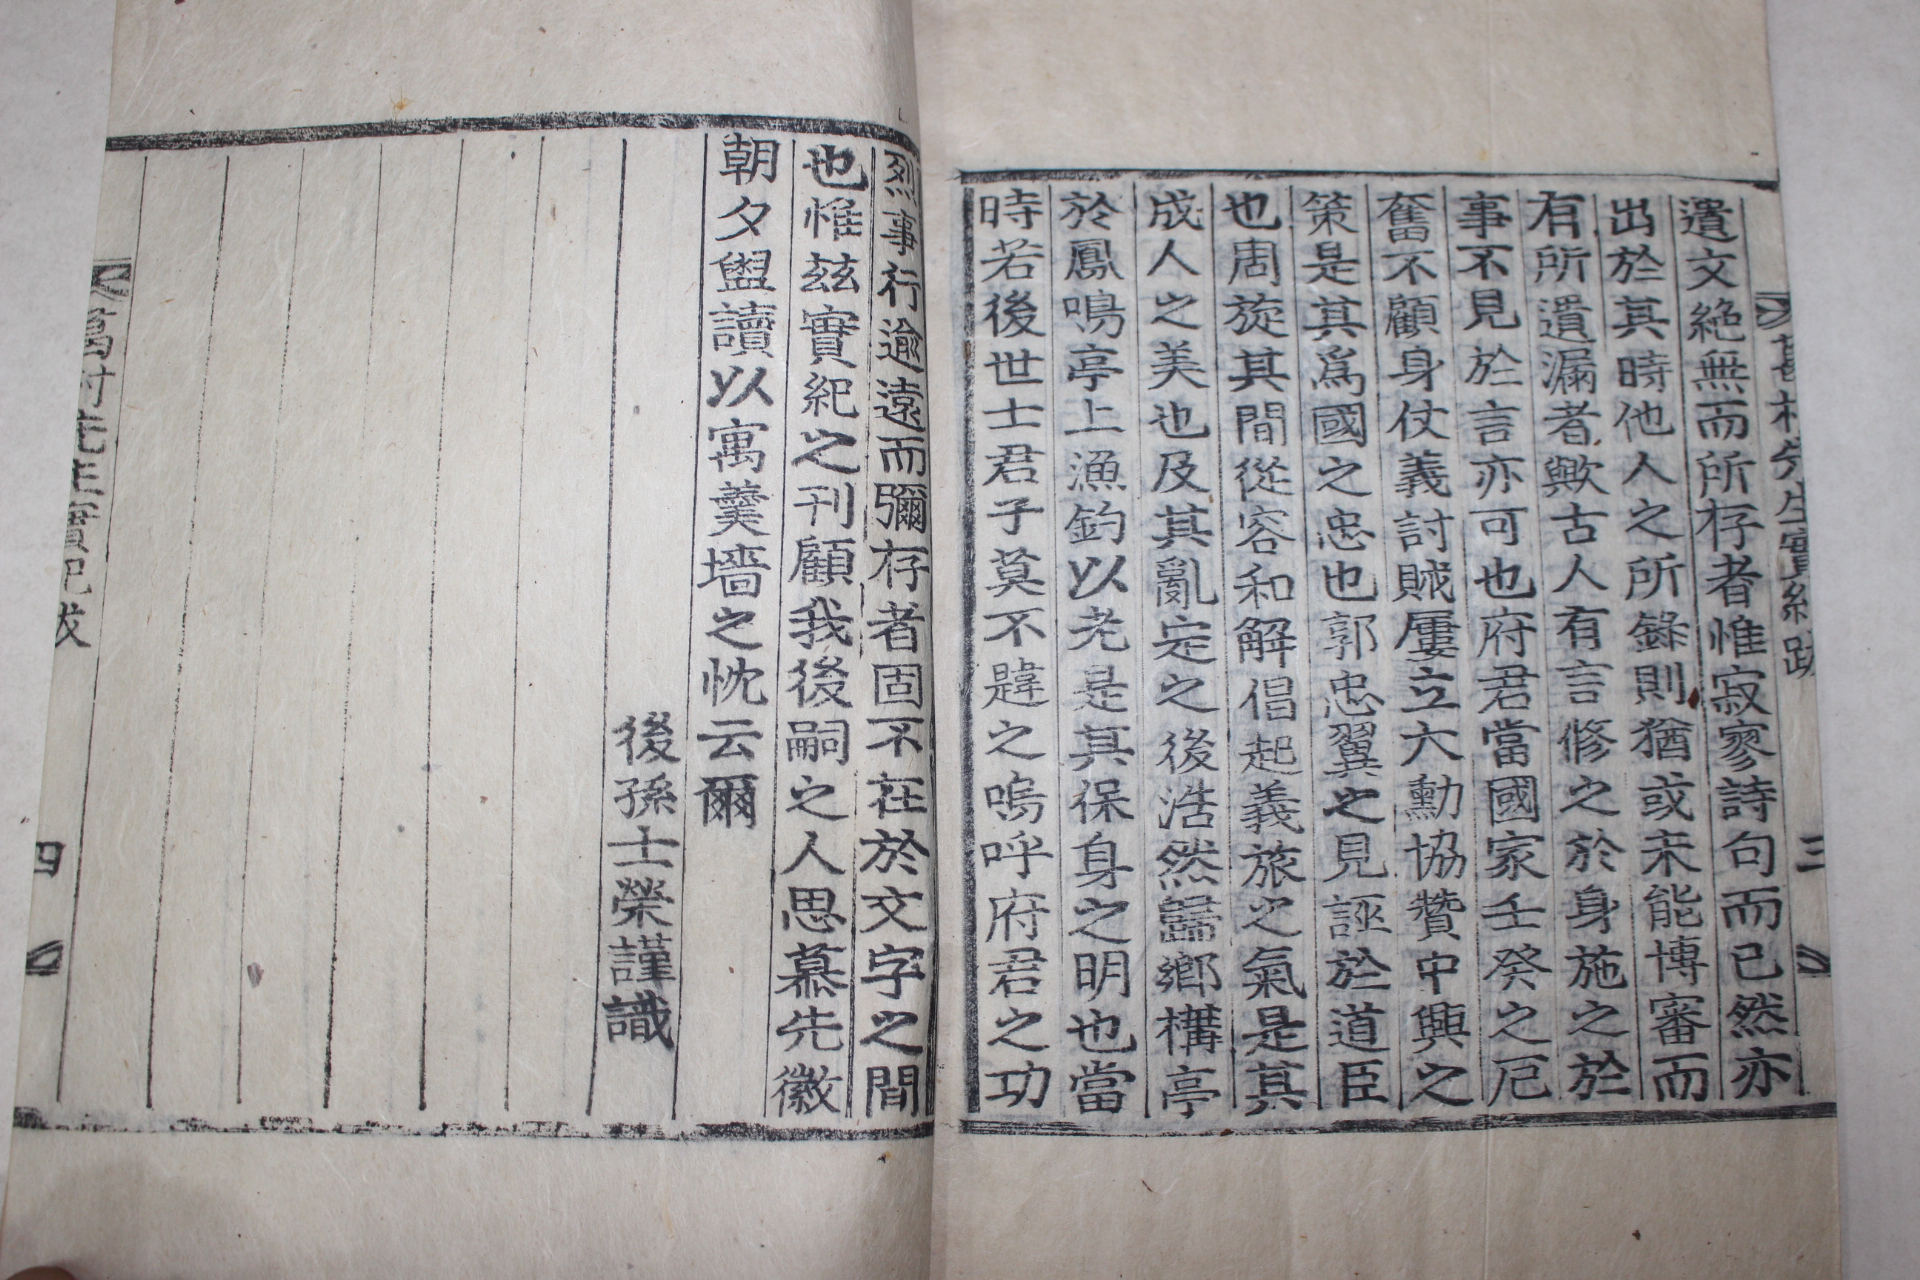 遺文絶無而所存者惟寂寥詩句而已然亦
出於其時他人之所錄則猶或未能博審而
有所遺漏者歟古人有言修之於身施之於
事不見於言亦可也府君當國家壬癸之厄
奮不顧身仗義討賊屢立大勳協贊中興之
策是其爲國之忠也郭忠翼之見誣於道臣
也周旋其間從容和解倡起義旅之氣是其
成人之美也及其亂定之後浩然歸鄕構亭
於鳳鳴亭上漁釣以老是其保身之明也當
時若後世士君子莫不韙之嗚呼府君之功
烈事行逾遠而彌存者固不在於文字之間
也惟玆實紀之刊顧我後嗣之人思慕先徽
朝夕盥讀以寓羹墻之忱云爾
後孫士榮謹識
村先生實紀跋
三
村先生實紀跋
四